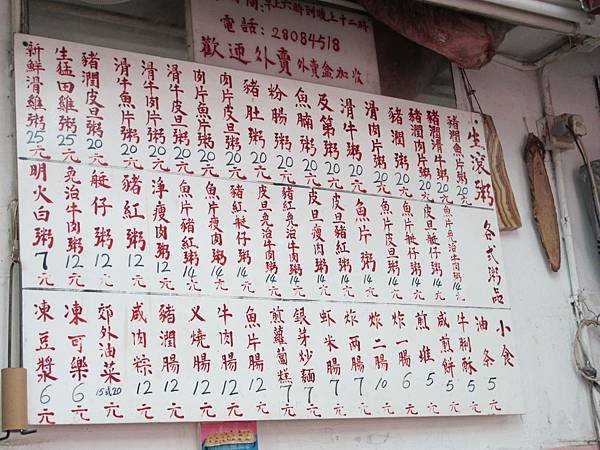 時間：早上六時到晚上十二時
電話：28084518
歡迎外賣 外賣盒加收
生滾粥
豬潤魚片粥20元
豬潤滑牛粥20元
豬潤肉片粥20元
豬潤粥20元
滑肉片粥20元
滑牛粥20元
及第粥20元
魚腩粥20元
粉腸粥20元
豬肚粥20元
肉片皮旦粥20元
肉片魚片粥20元
滑牛皮旦粥20元
滑牛肉片粥20元
滑牛魚片粥20元
豬潤皮旦粥20元
生猛田雞粥25元
新鮮滑雞粥25元
各式粥品
魚片免治牛肉粥14元
皮旦艇仔粥14元
魚片艇仔粥14元
魚片皮旦粥14元
魚片粥14元
皮旦瘦肉粥14元
豬紅免治牛肉粥14元
皮旦免治牛肉粥14元
豬紅艇仔粥14元
魚片瘦肉粥14元
魚片豬紅粥14元
淨瘦肉粥12元
豬紅粥12元
艇仔粥12元
免治牛肉粥12元
明火白粥7元
小食
油条5元
牛脷酥5元
咸煎餅5元
煎堆5元
炸一腸6元
炸二腸10元
炸兩腸7元
虾米腸7元
銀芽炒麵7元
煎蘿蔔糕7元
魚片腸12元
牛肉腸12元
叉燒腸12元
豬潤腸12元
咸肉粽12元
郊外油菜15或20元
凍可樂6元
凍豆漿6元